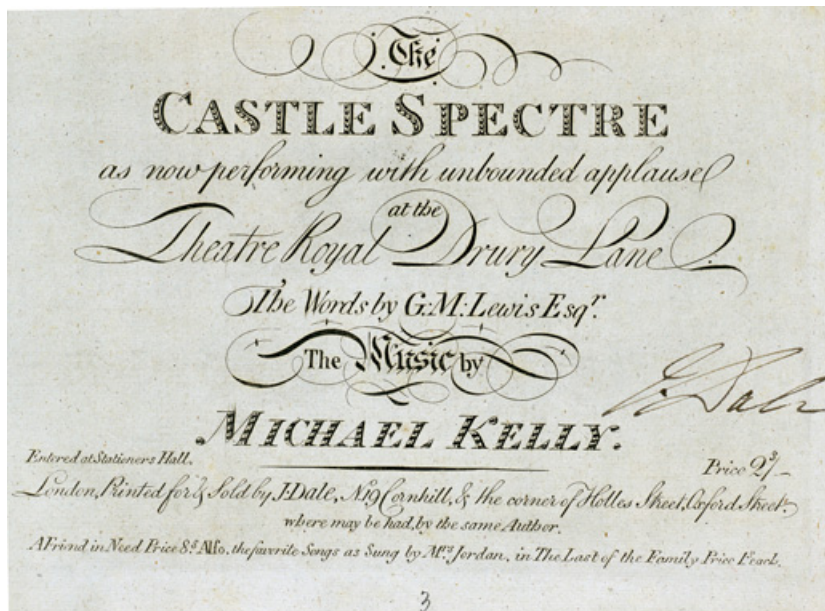 The
CASTLE SPECTRE
as now performing with unbounded applause
at the
Theatre Royal Drury Lane
The Words by G:M:Lewis Esqr.
The Music by
MICHAEL KELLY.
J. Dale
Entered at Stationers Hall.
Price 2/
London, Printed for & Sold by J. Dale, No 19 Cornhill, & the corner of Holles Street, Oxford Street
where may be had, by the same Author.
A Friend in Need Price 8s. Also, the favorite Songs as Sung by Mrs. Jordan, in The Last of the Family Price 1s. each.
3